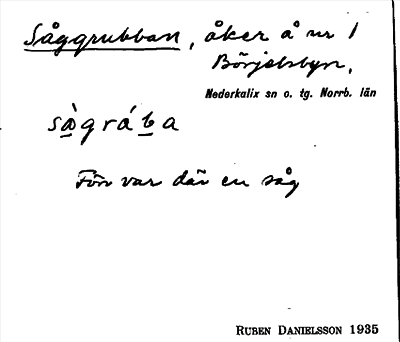 Såggrubban, åker å nr 1
Börjelsbyn,
Nederkalix sn o. tg. Norrb. län
sàgrába
Förr var där en såg
RUBEN DANIELSSON 1935